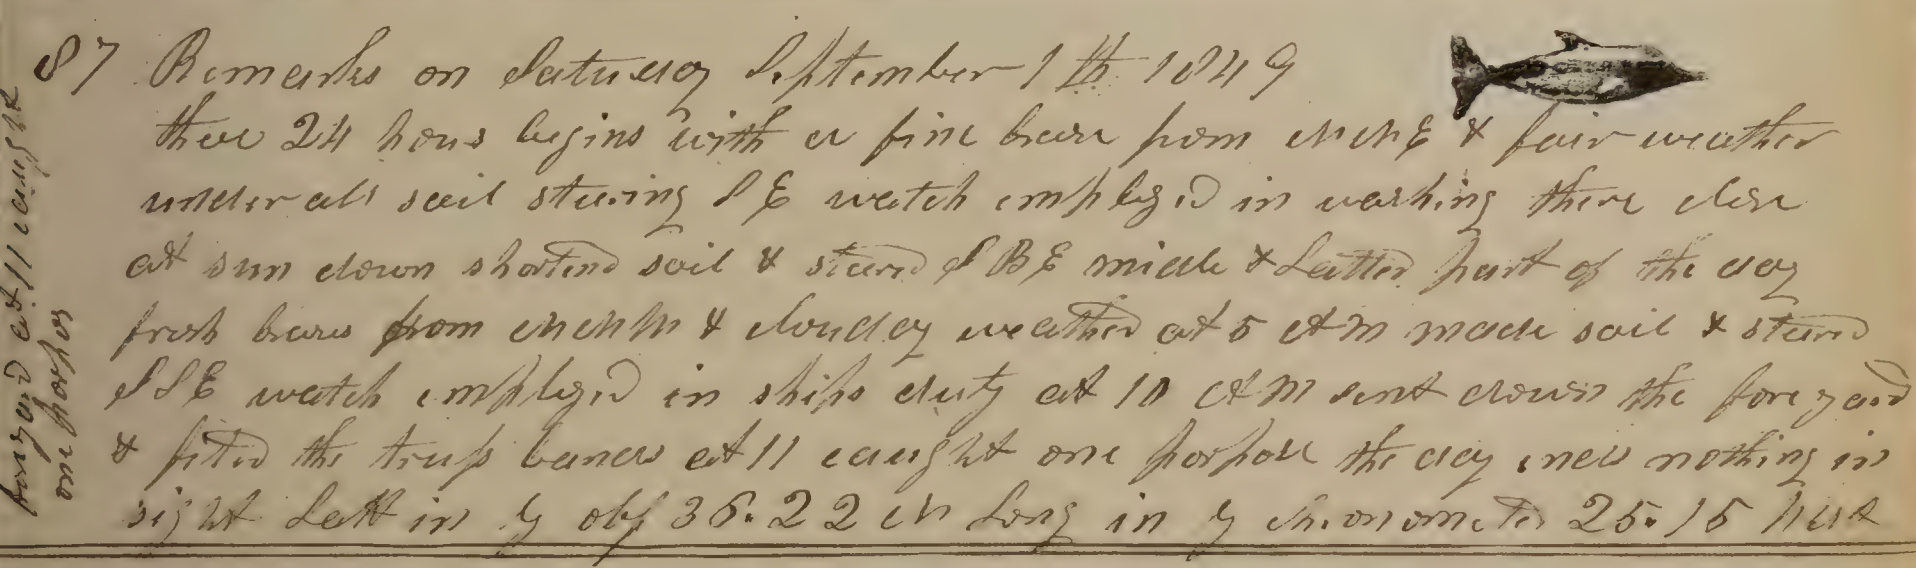 87 Remarks on Satuday September 1th 1849
thee 24 hous begins with a fine breese from NNE & fair weather
under all sail steering SE watch employed in washing there close
at sun down shortend sail & steered SBE midle & Latter part of the day
fresh breses from NNW & cloudy weather at 5 AM made sail & steered
SSE watch employed in ships duty at 10 AM sent down the foreyard
& fited the truss bands at 11 caught one porpose the day ends nothing in
sight Latt in by obs 36.22 N Long in by chronometer 25.15 West
foreyard at 11 caught
one porpos